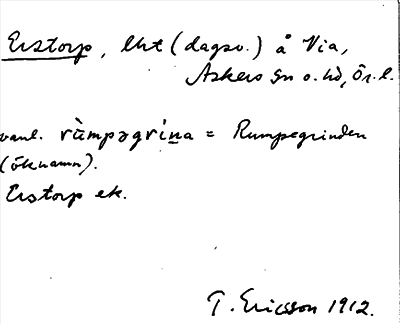 Erstorp, lht (dagsv.) å Via,
Askers sn o. hd, Ör. l.
vanl. rùmpəgrina = Rumpegrinden
(öknamn).
Erstorp ek.
T. Ericsson 1912.